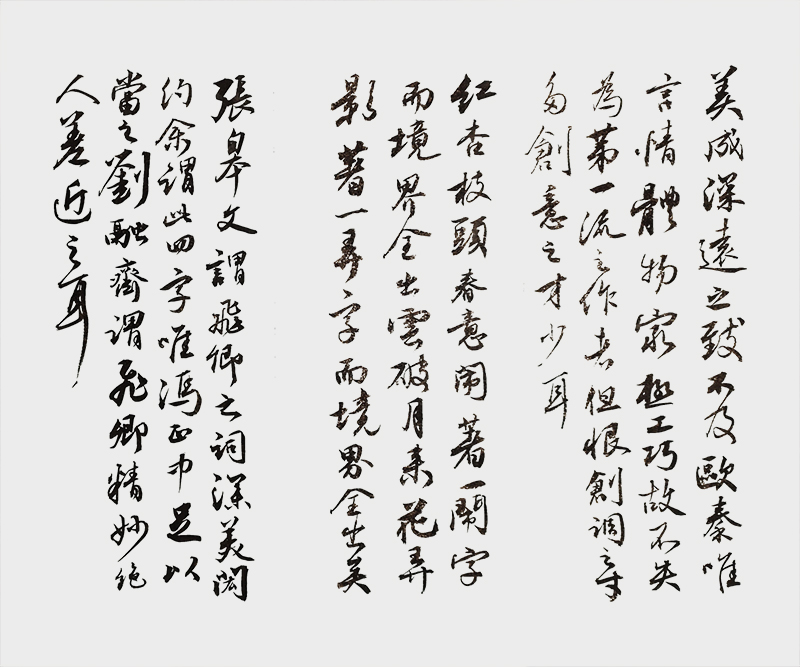 美成深遠之致不及歐秦唯
言情體物窮極工巧故不失
為第一流之作者但恨創調之才
多創意之才少耳
紅杏枝頭春意闹著一鬧字
而境界全出雲破月來花弄
影著一弄字而境界全出矣
張皋文謂飛卿之詞深美閎
約余謂此四字唯馮正中足以
當之劉融齋謂飛卿精妙絕
人差近之耳